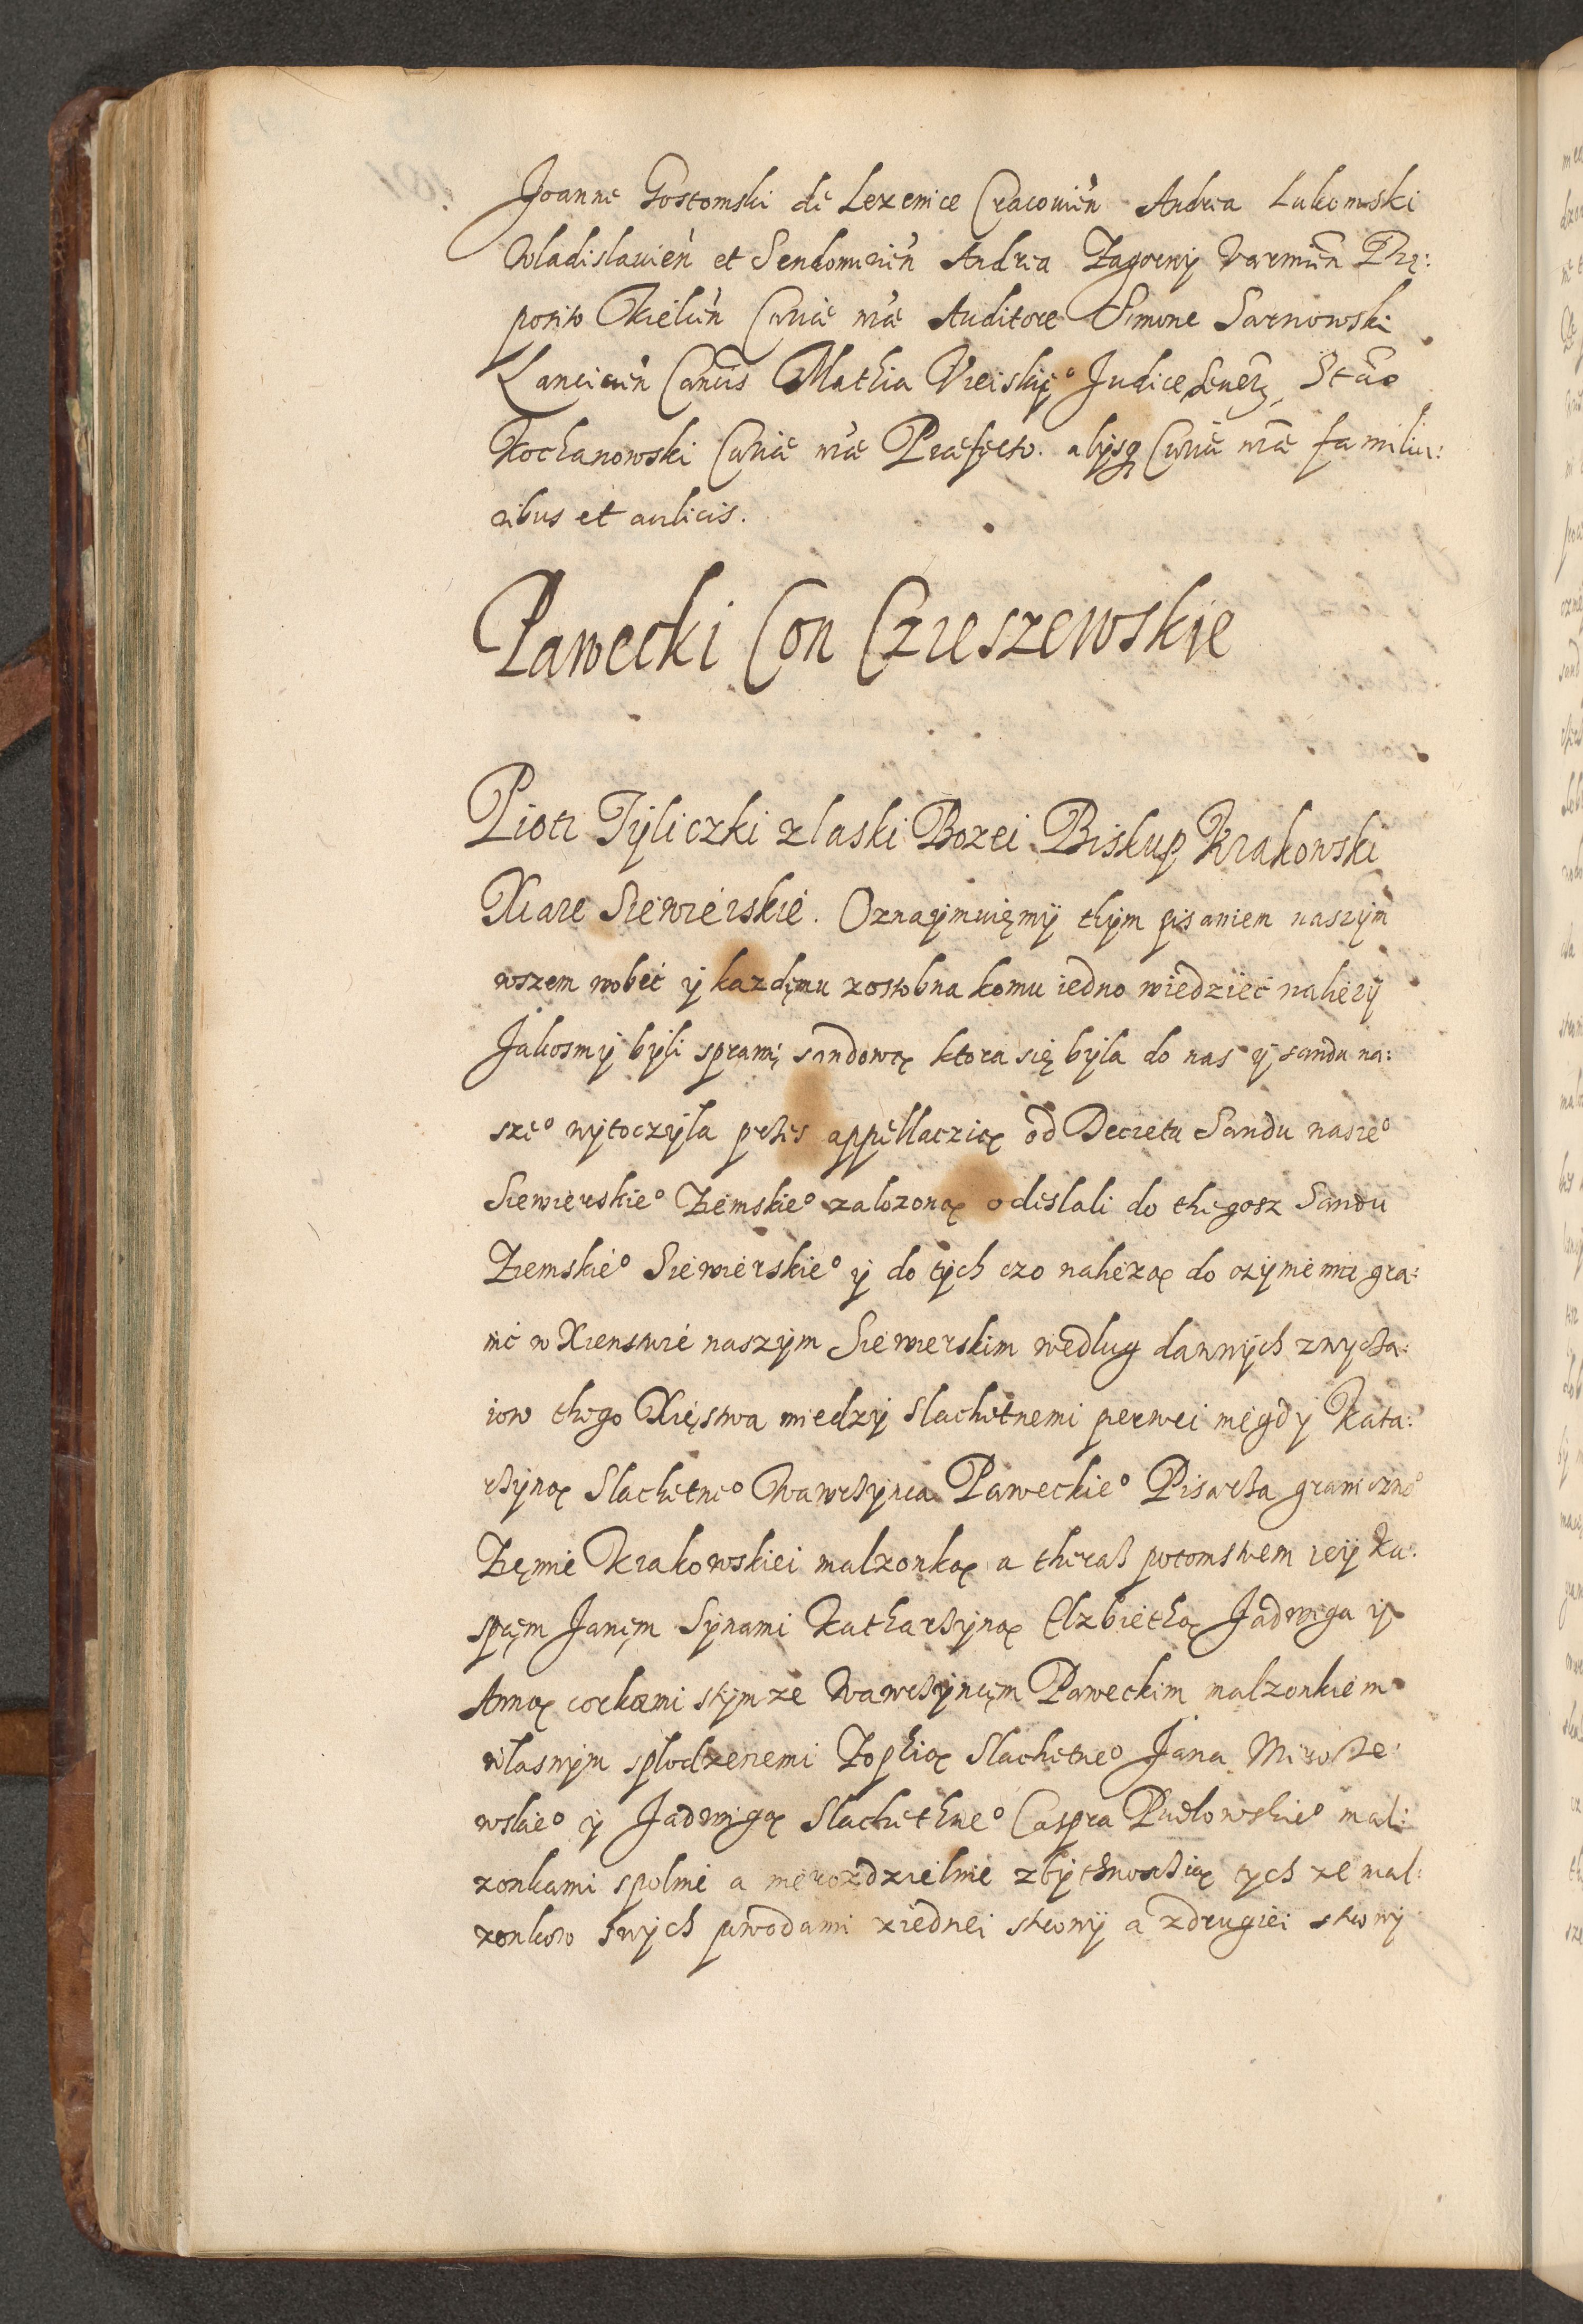 Joanne Gostomski de Lezenice Cracovień Andrea Lukomski
Wladislavień et Sendomirień Andrea Zagorny Varmień Prę:
posito Kielcień Curiæ nræ Auditore Simone Sarnowski
Lancicień Canĉis Mathia Judice Stao
Kochanowski Curiæ nræ Præfecto. alijsq Curiæ nræ familia:
ribus et aulicis.
Pawecki Con Czieszewskie
Piotr Tÿliczki z laski Bozei Biskup Krakowski
Xiąze Siewierskie. Oznaÿmuięmÿ thÿm pisaniem naszÿm
wszem wobec ÿ kazdęmu zosobna komu iedno wiedziec nalezÿ
Jakosmÿ bÿli sprawę sandową ktora się bÿla do nas ÿ sandu na:
sze° wÿtoczÿla przes appellaczią od Decretu Sandu nasze°
Siewierskie° Ziemskie° zalozoną odeslali do thegosz Sandu
Ziemskie° Siewierskie° ÿ do tÿch czo nalezą do czÿnienia gra:
nic w Xienstwie naszÿm Siewierskim wedlug dawnÿch zwycza:
iow thego Xięstwa miedzÿ Slachetnemi pierwei niegdy Kata:
rzÿną Slachetne° Wawrzÿnca Paweckie° Pisarza graniczne°
Zięmie Krakowskiei malzonką a theraz potomstwem ieÿ Ka:
spręm Janęm Sÿnami Katharzÿną Elzbiethą Jadwigą ÿ
Anną corkami stÿmze Wawrzÿncęm Paweckim malzonkiem
wlasnÿm splodzenemi Zophią Slachetne° Jana Mirosze:
wskie° ÿ Jadwigą Slachethne° Caspra Pudlowskie° mal:
zonkami spolnie a nierozdzielnie zbÿthnosczią tych ze mal:
zonkow swÿch powodami ziednei stronÿ a zdrugiei stronÿ